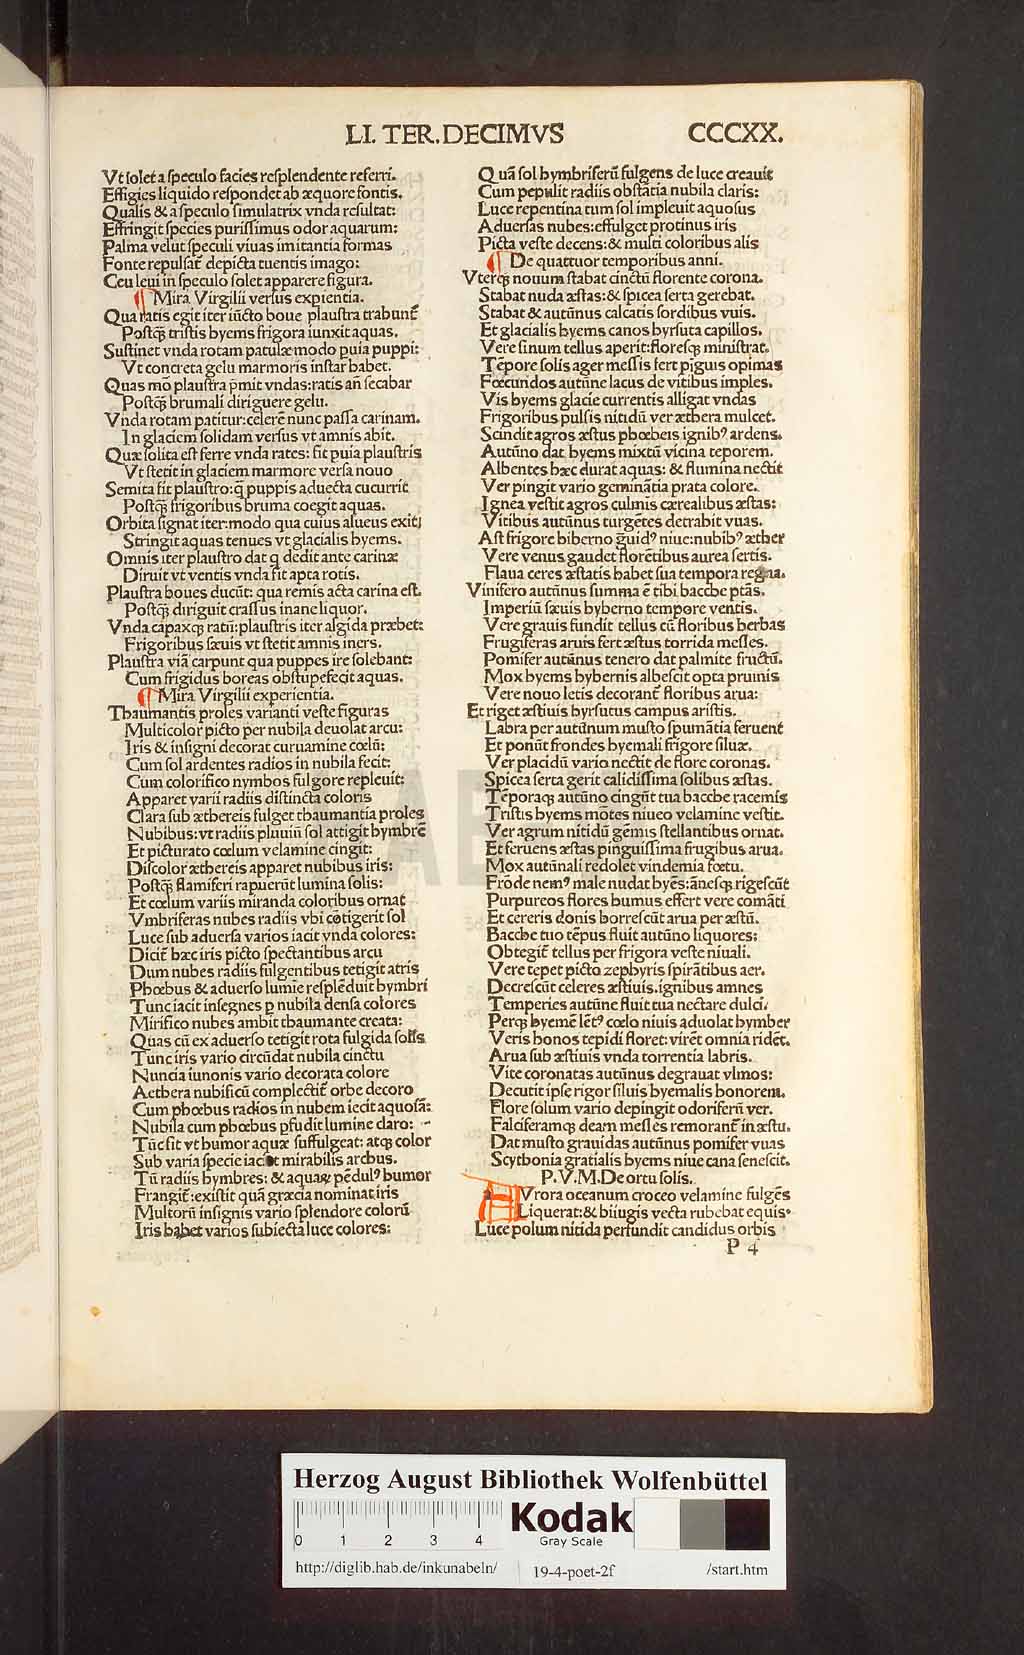 LI. TER. DECIMVS
CCCXX.
Vt solet a speculo facies resplendente referri.
Effigies liquido respondet ab æquore fontis.
Qualis & a speculo simulatrix vnda resultat:
Effringit species purissimus odor aquarum:
Palma velut speculi viuas imitantia formas
Fonte repulsat̄ depicta tuentis imago:
Ceu leui in speculo solet apparere figura.
¶ Mira Virgilii versus expientia.
Qua ratis egit iter iūcto boue plaustra trahunt̄
Postq̄ʒ tristis hyems frigora iunxit aquas.
Sustinet vnda rotam patulæ modo puia puppi:
Vt concreta gelu marmoris instar habet.
Quas mō plaustra p̄mit vndas: ratis añ secabar
Postq̄ʒ brumali diriguere gelu.
Vnda rotam patitur: celerē nunc passa carinam.
In glaciem solidam versus vt amnis abit.
Quæ solita est ferre vnda rates: fit puia plaustris
Vt stetit in glaciem marmore versa nouo
Semita fit plaustro: q̄ puppis aduecta cucurrit
Postq̄ʒ frigoribus bruma coegit aquas.
Orbita signat iter: modo qua cuius alueus exit;
Stringit aquas tenues vt glacialis hyems.
Omnis iter plaustro dat q̄ dedit ante carinæ
Diruit vt ventis vnda fit apta rotis.
Plaustra boues ducūt: qua remis acta carina est.
Postq̄ʒ diriguit crassus inane liquor.
Vnda capaxqʒ ratū: plaustris iter algida præbet:
Frigoribus sæuis vt stetit amnis iners.
Plaustra viā carpunt qua puppes ire solebant:
Cum frigidus boreas obstupefecit aquas.
¶ Mira Virgilii experientia.
Thaumantis proles varianti veste figuras
Multicolor picto per nubila deuolat arcu:
Iris & insigni decorat curuamine cœlū:
Cum sol ardentes radios in nubila fecit:
Cum colorifico nymbos fulgore repleuit:
Apparet varii radiis distincta coloris
Clara sub æthereis fulget thaumantia proles
Nubibus: vt radiis pluuiū sol attigit hymbrē
Et picturato cœlum velamine cingit:
Discolor æthereis apparet nubibus iris:
Postq̄ʒ flamiferi rapuerūt lumina solis:
Et cœlum variis miranda coloribus ornat
Vmbriferas nubes radiis vbi cōtigerit sol
Luce sub aduersa varios iacit vnda colores:
Dicit̄ hæc iris picto spectantibus arcu
Dum nubes radiis fulgentibus tetigit atris
Phœbus & aduerso lumīe resplēduit hymbri
Tunc iacit insegnes p̱ nubila densa colores
Mirifico nubes ambit thaumante creata:
Quas cū ex aduerso tetigit rota fulgida solis
Tunc iris vario circūdat nubila cinctu
Nuncia iunonis vario decorata colore
Aethera nubificū complectit̄ orbe decoro
Cum phœbus radios in nubem iecit aquosā:
Nubila cum phœbus ꝑfudit lumine claro:
Tūc fit vt humor aquæ suffulgeat: atqʒ color
Sub varia specie iacit mirabilis archus.
Tū radiis hymbres: & aquaꝝ pēdulꝰ humor
Frangit̄: existit quā græcia nominat iris
Multorū insignis vario splendore colorū
Iris habet varios subiecta luce colores:
Quā sol hymbriferū fulgens de luce creauit
Cum pepulit radiis obstātia nubila claris:
Luce repentina tum sol impleuit aquosus
Aduersas nubes: effulget protinus iris
Picta veste decens: & multi coloribus alis
¶ De quattuor temporibus anni.
Vterqʒ nouum stabat cinctū florente corona.
Stabat nuda æstas: & spicea serta gerebat.
Stabat & autūnus calcatis sordibus vuis.
Et glacialis hyems canos hyrsuta capillos.
Vere sinum tellus aperit: floresqʒ ministrat.
Tēpore solis ager messis fert pīguis opimas
Fœcundos autūne lacus de vitibus imples.
Vis hyems glacie currentis alligat vndas
Frigoribus pulsis nitidū ver æthera mulcet.
Scindit agros æstus phœbeis ignibꝰ ardens.
Autūno dat hyems mixtū vicina teporem.
Albentes hæc durat aquas: & flumina nectit
Ver pingit vario gemināтia prata colore.
Ignea vestit agros culmis cærealibus æstas:
Vitibus autūnus turgētes detrahit vuas.
Ast frigore hiberno g̱uidꝰ niue: nubibꝰ æther
Vere venus gaudet florētibus aurea sertis.
Flaua ceres æstatis habet sua tempora regna.
Vinifero autūnus summa ē tibi bacche ptās.
Imperiū sæuis hyberno tempore ventis.
Vere grauis fundit tellus cū floribus herbas
Frugiferas aruis fert æstus torrida messes.
Pomifer autūnus tenero dat palmite fructū.
Mox hyems hybernis albescit opta pruinis
Vere nouo letis decorant̄ floribus arua:
Et riget æstiuis hyrsutus campus aristis.
Labra per autūnum musto spumātia feruent
Et ponūt frondes hyemali frigore siluæ.
Ver placidū vario nectit de flore coronas.
Spicea serta gerit calidissima solibus æstas.
Tēporaqʒ autūno cingūt tua bacche racemis
Tristis hyems mōtes niueo velamine vestit.
Ver agrum nitidū gēmis stellantibus ornat.
Et feruens æstas pinguissima frugibus arua.
Mox autūnali redolet vindemia fœtu.
Frōde nemꝰ male nudat hyēs: ānesqʒ rigescūt
Purpureos flores humus effert vere comāti
Et cereris donis horrescūt arua per æstū.
Bacche tuo tēpus fluit autūno liquores:
Obtegit̄ tellus per frigora veste niuali.
Vere tepet picto zephyris spirātibus aer.
Decrescūt celeres æstiuis ignibus amnes
Temperies autūne fluit tua nectare dulci.
Perqʒ hyemē lētꝰ cœlo niuis aduolat hymber
Veris honos tepidi floret: virēt omnia ridēt.
Arua sub æstiuis vnda torrentia labris.
Vite coronatas autūnus degrauat vlmos:
Decutit ipse rigor siluis hyemalis honorem.
Flore solum vario depingit odoriferū ver.
Falciferamqʒ deam messes remorant̄ in æstu.
Dat musto grauidas autūnus pomifer vuas
Scythonia gratialis hyems niue cana senescit.
P. V. M. De ortu solis.
AVrora oceanum croceo velamine fulgēs
Liquerat: & biiugis vecta rubebat equis
Luce polum nitida perfundit candidus orbis
P 4
Herzog August Bibliothek Wolfenbüttel
0 1 2 3 4
Kodak
Gray Scale
http://diglib.hab.de/inkunabeln/ 19-4-poet-2f /start.htm